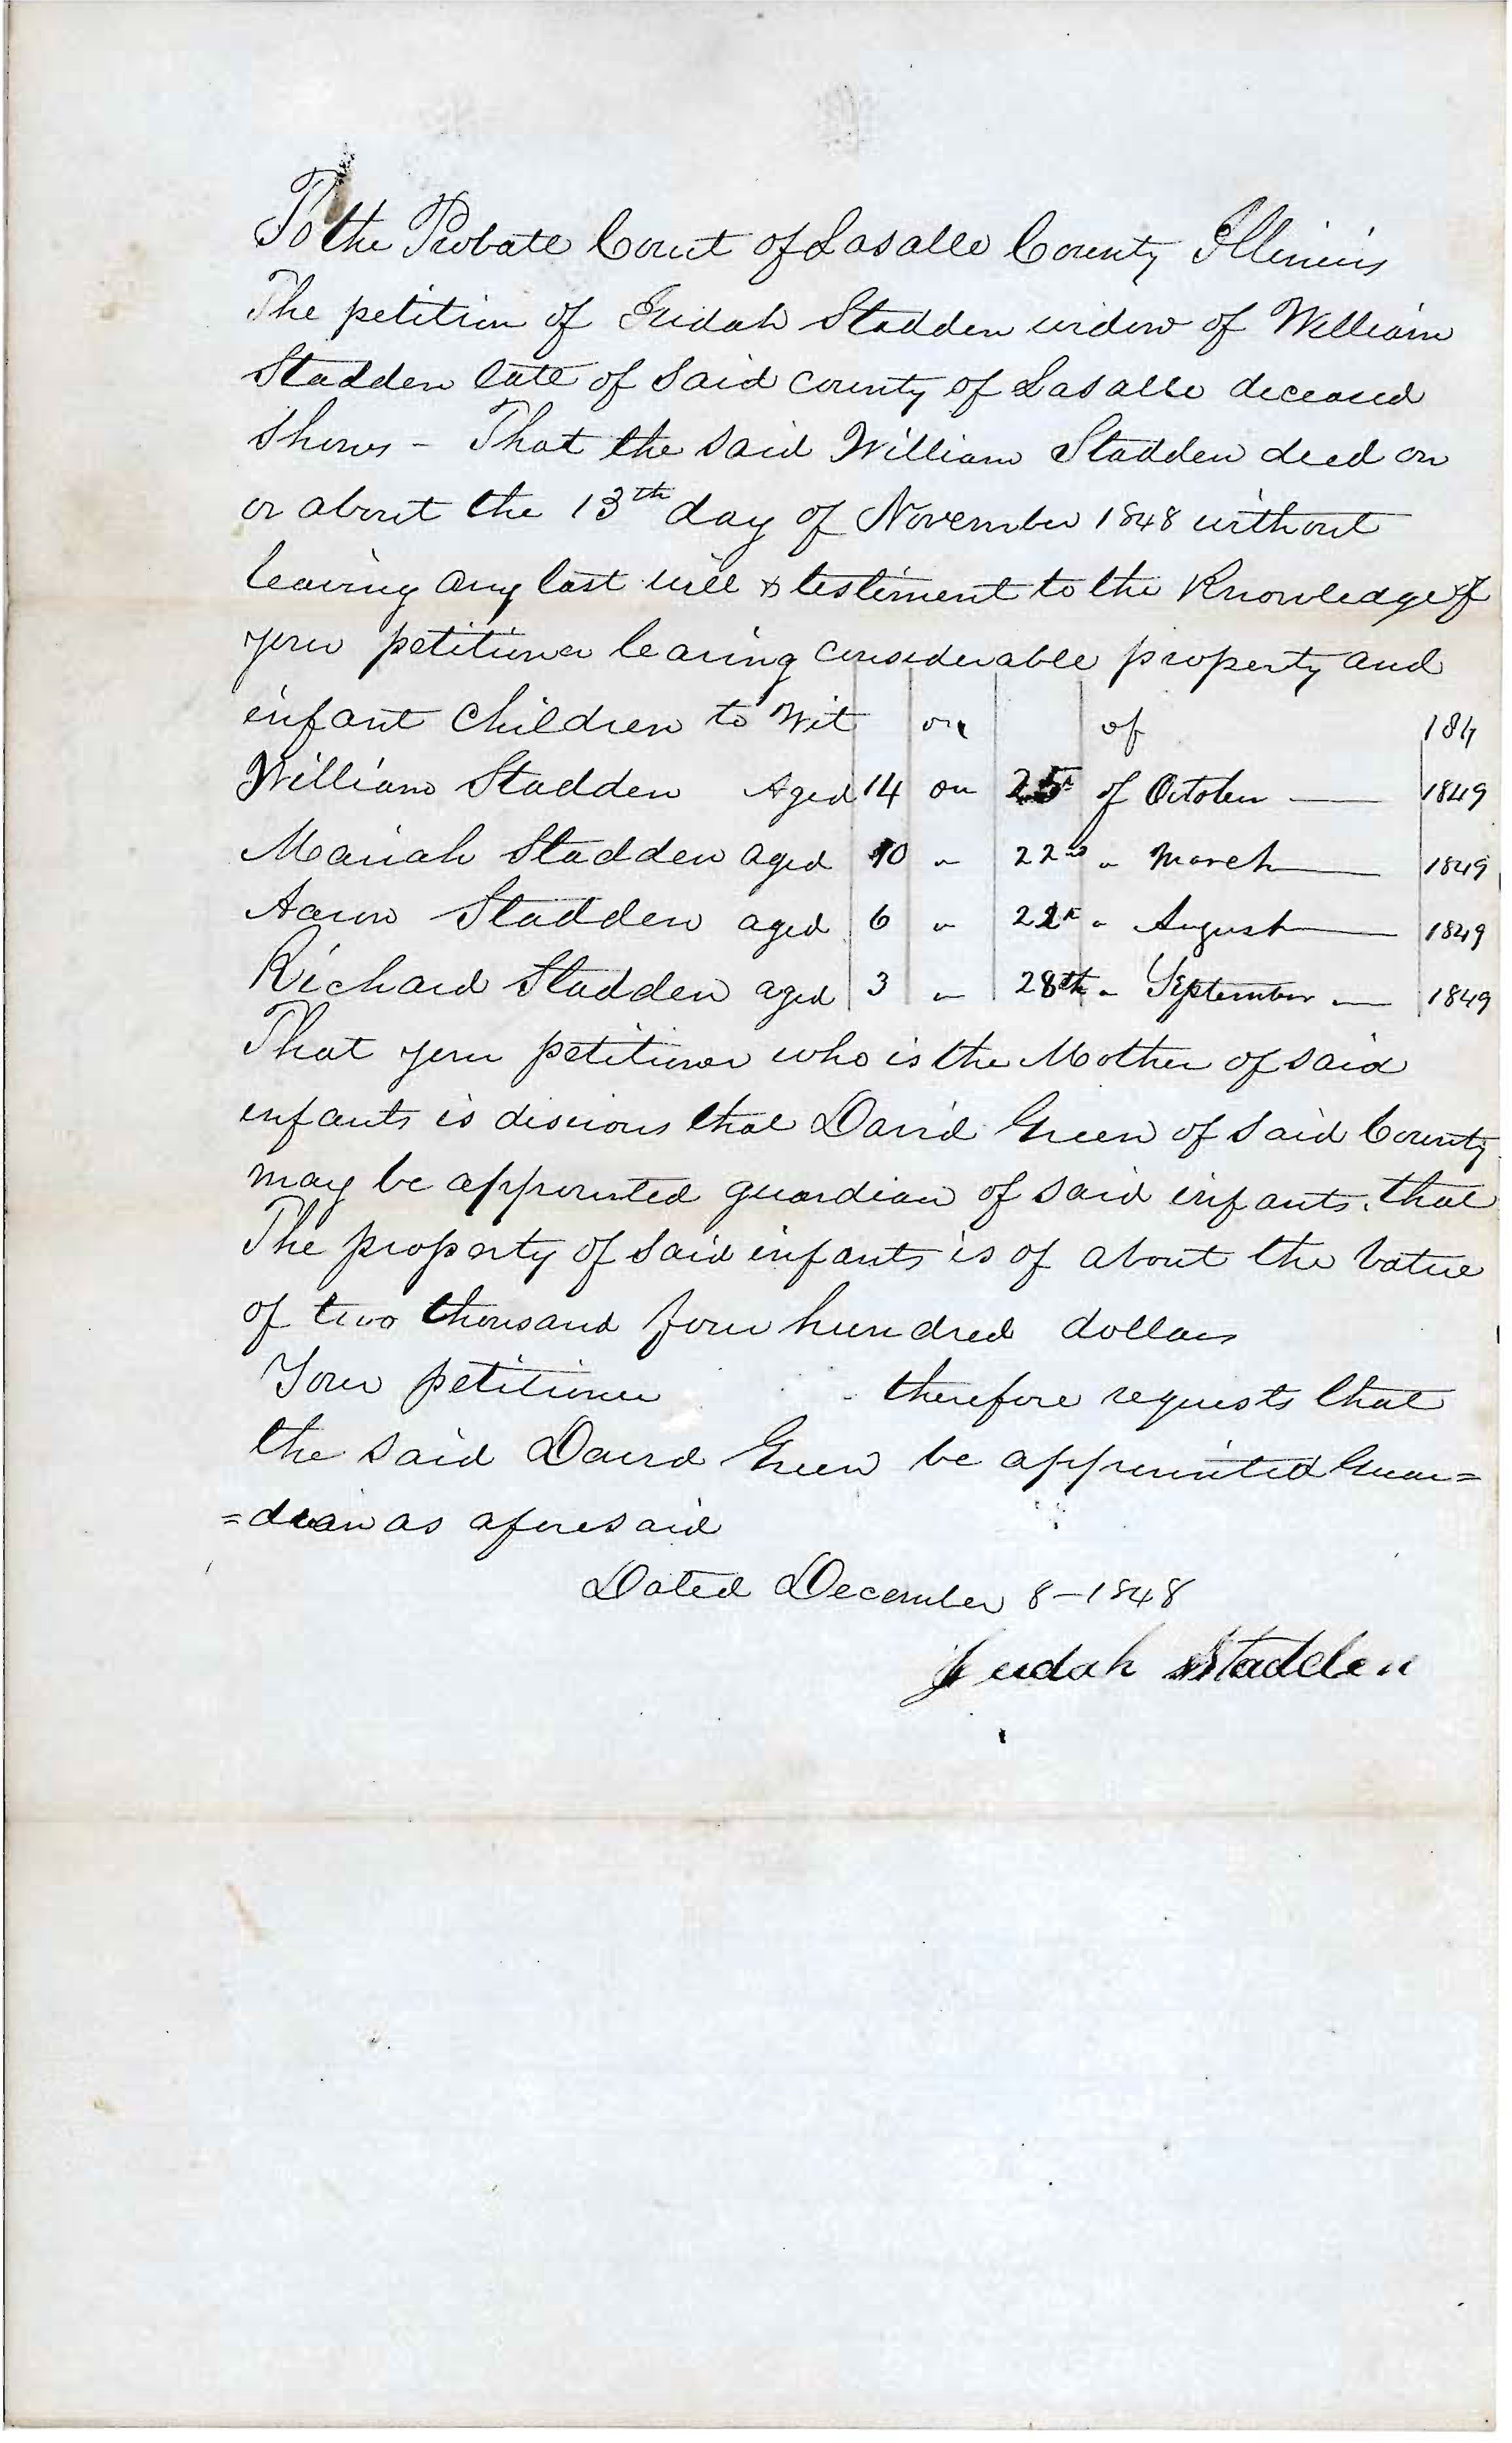 To the Probate Court of Lasalle County Illinois
The petition of Judah Stadden widow of William
Stadden late of Said county of Lasalle deceased
Shows - That the said William Stadden died on
or about the 13th day of November 1848 without
leaving any last will & testiment to the Knowledge of
your petitioner leaving considerable property and
infant children to Wit on of 184
William Stadden Aged 14 on 25th of October — 1849
Mariah Stadden aged 10 " 22nd " March — 1849
Aaron Stadden aged 6 " " August — 1849
Richard Stadden aged 3 " 28th " September — 1849
That your petitioner who is the Mother of said
infants is desirous that David Green of said County
may be appointed guardian of said infants. that
The property of said infants is of about the value
of two thousand four hundred dollars
Your petitioner therefore requests that
the said David Green be appointed Guar=
=dian as aforesaid
Dated December 8-1848
Judah Stadden